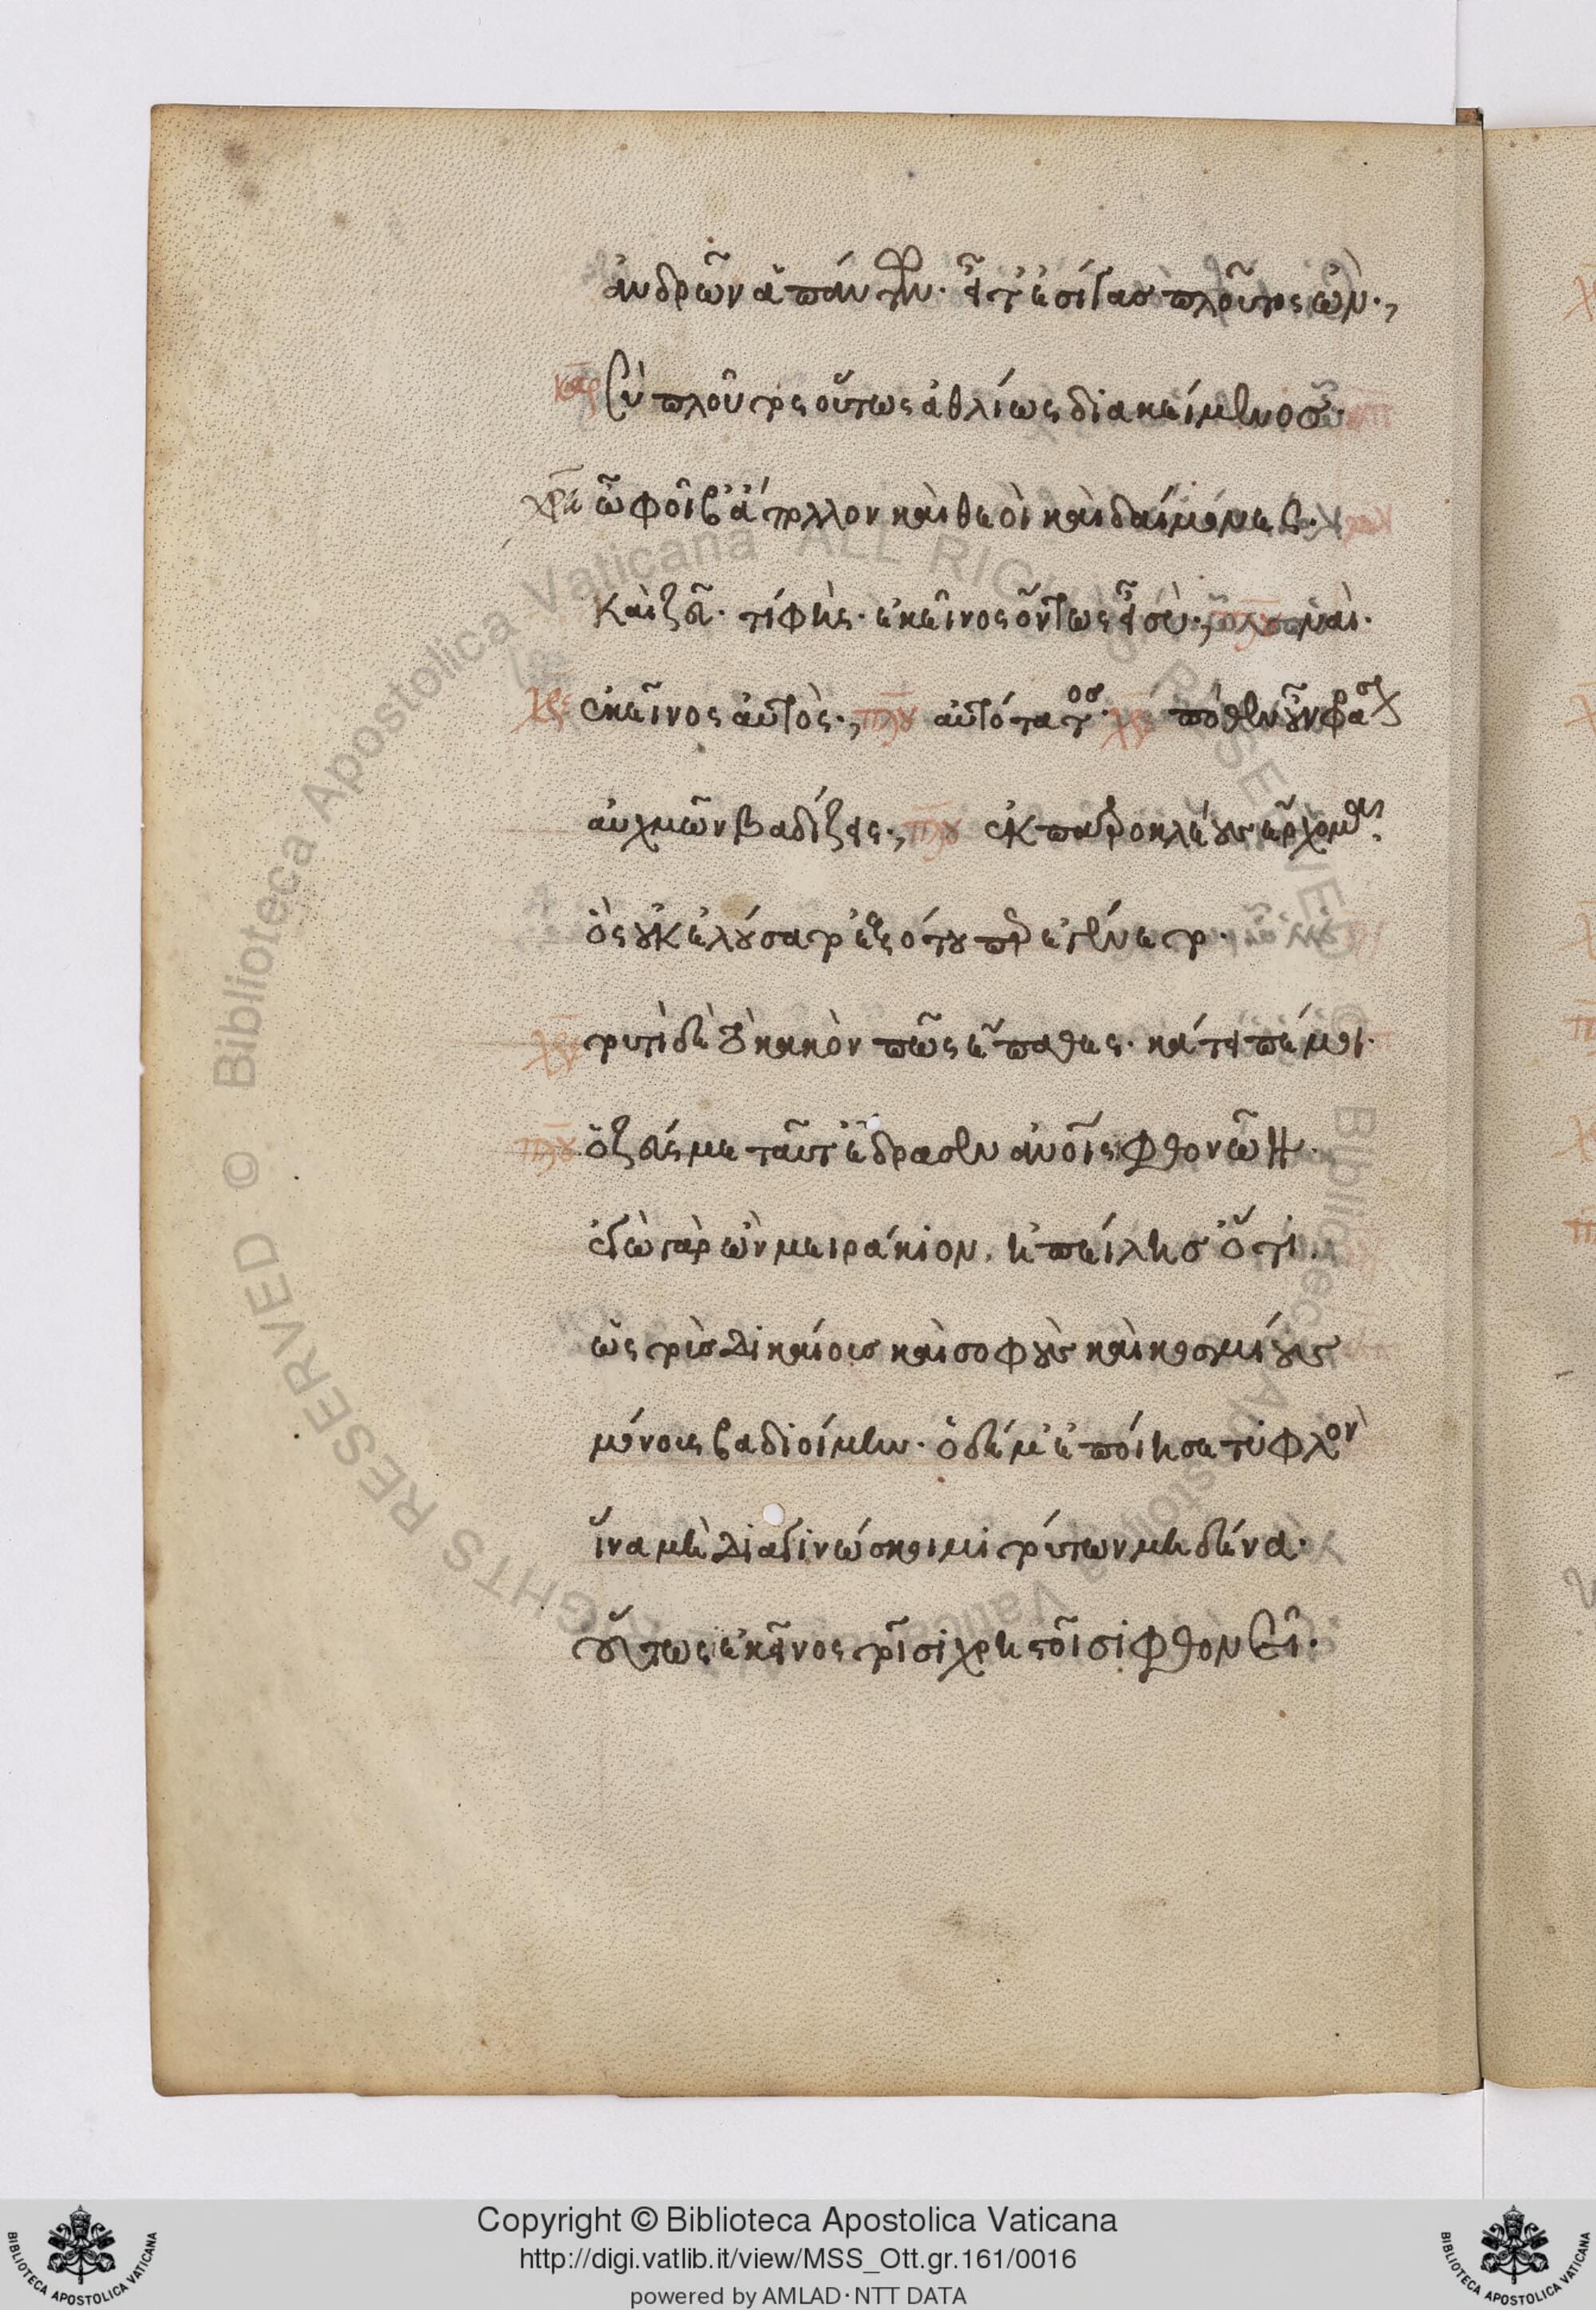 ἀνδρῶν ἁπάντων· εἶτ' ἐσίγας πλοῦτος ὤν·,
καρ σὺ πλοῦτος οὕτως ἀθλίως διακείμενος·
χρε ὦ φοῖβ' ἄπολλον καὶ θεοὶ καὶ δαίμονες·
καὶ ζεῦ· τί φής· ἐκεῖνος ὄντως εἶ σύ·, πλου ναί·
χρε ἐκεῖνος αὐτός·, πλου αὐτότατος· χρε πόθεν οὖν φράσον
αὐχμῶν βαδίζεις·, πλου ἐκ πατροκλέους ἔρχομαι,
ὃς οὐκ ἐλούσατ' ἐξ ὅτου περ ἐγένετο·
χρε τουτὶ δὲ τὸ κακὸν πῶς ἔπαθες· κάτειπέ μοι·
πλου ὁ ζεύς με ταῦτ' ἔδρασεν ἀνοις φθονῶν·
ἐγὼ γὰρ ὢν μειράκιον, ἠπείλησ' ὅτι·
ὡς τοὺς δικαίους καὶ σοφοὺς καὶ κοσμίους
μόνους βαδιοίμην· ὁ δέ μ' ἐποίησε τυφλὸν
ἵνα μὴ διαγινώσκοιμι τούτων μηδένα·
οὕτως ἐκεῖνος τοῖσι χρηστοῖσι φθονεῖ·
Copyright © Biblioteca Apostolica Vaticana
http://digi.vatlib.it/view/MSS_Ott.gr.161/0016
powered by AMLAD·NTT DATA
BIBLIOTECA APOSTOLICA VATICANA
BIBLIOTECA APOSTOLICA VATICANA